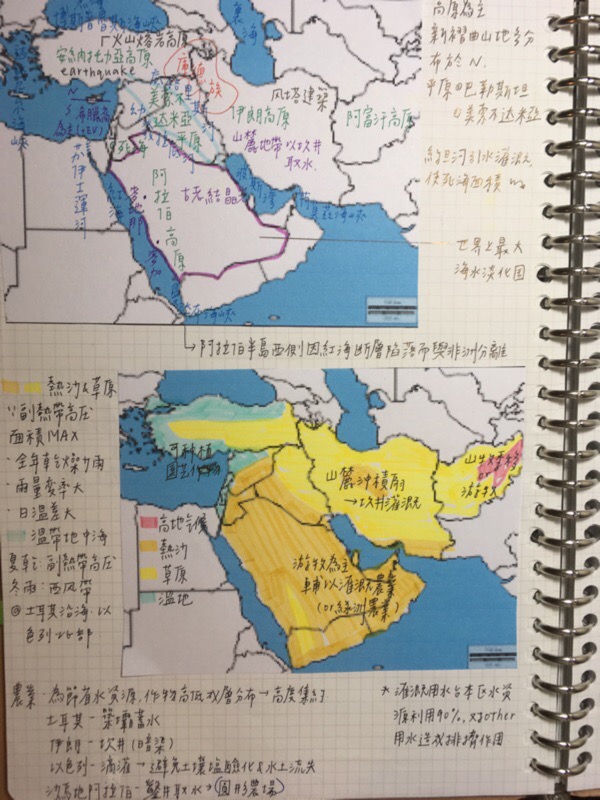 裏海
火山熔岩高原
安納托力亞高原
earthquake
庫德族
美索不
達米亞
平原
死海
伊朗高原
山麓地帶以坎井
取水
風塔建築
阿富汗高原
蘇伊士運河
紅海
波斯灣
阿拉伯高原
古老結晶
麥地那
麥加
高原為主
新褶曲山地多分
布於N.
平原①巴勒斯坦
②美索不達米亞
約旦河引水灌溉
使死海面積
世界上最大
海水淡化國
→阿拉伯半島西側因紅海斷層陷落而與非洲分離
熱沙&草原
∵副熱帶高壓
面積MAX
·全年乾燥少雨
·雨量變率大
·日溫差大
溫帶地中海
夏乾:副熱帶高壓
冬雨:西風帶
@土耳其沿海、以
色列北部
可種植
園藝作物
山麓沖積扇
→坎井灌溉
游牧
高地氣候
熱沙
草原
溫地
游牧為主
輔以灌溉農業
(or綠洲農業)
農業·為節省水資源,作物高低成層分布→高度集約
土耳其-築壩蓄水
伊朗-坎井(暗渠)
以色列-滴灌→避免土壤塩鹼化&水土流失
沙烏地阿拉伯-鑿井取水→圓形農場
*灌溉用水占本區水資
源利用90%,對other
用水造成排擠作用